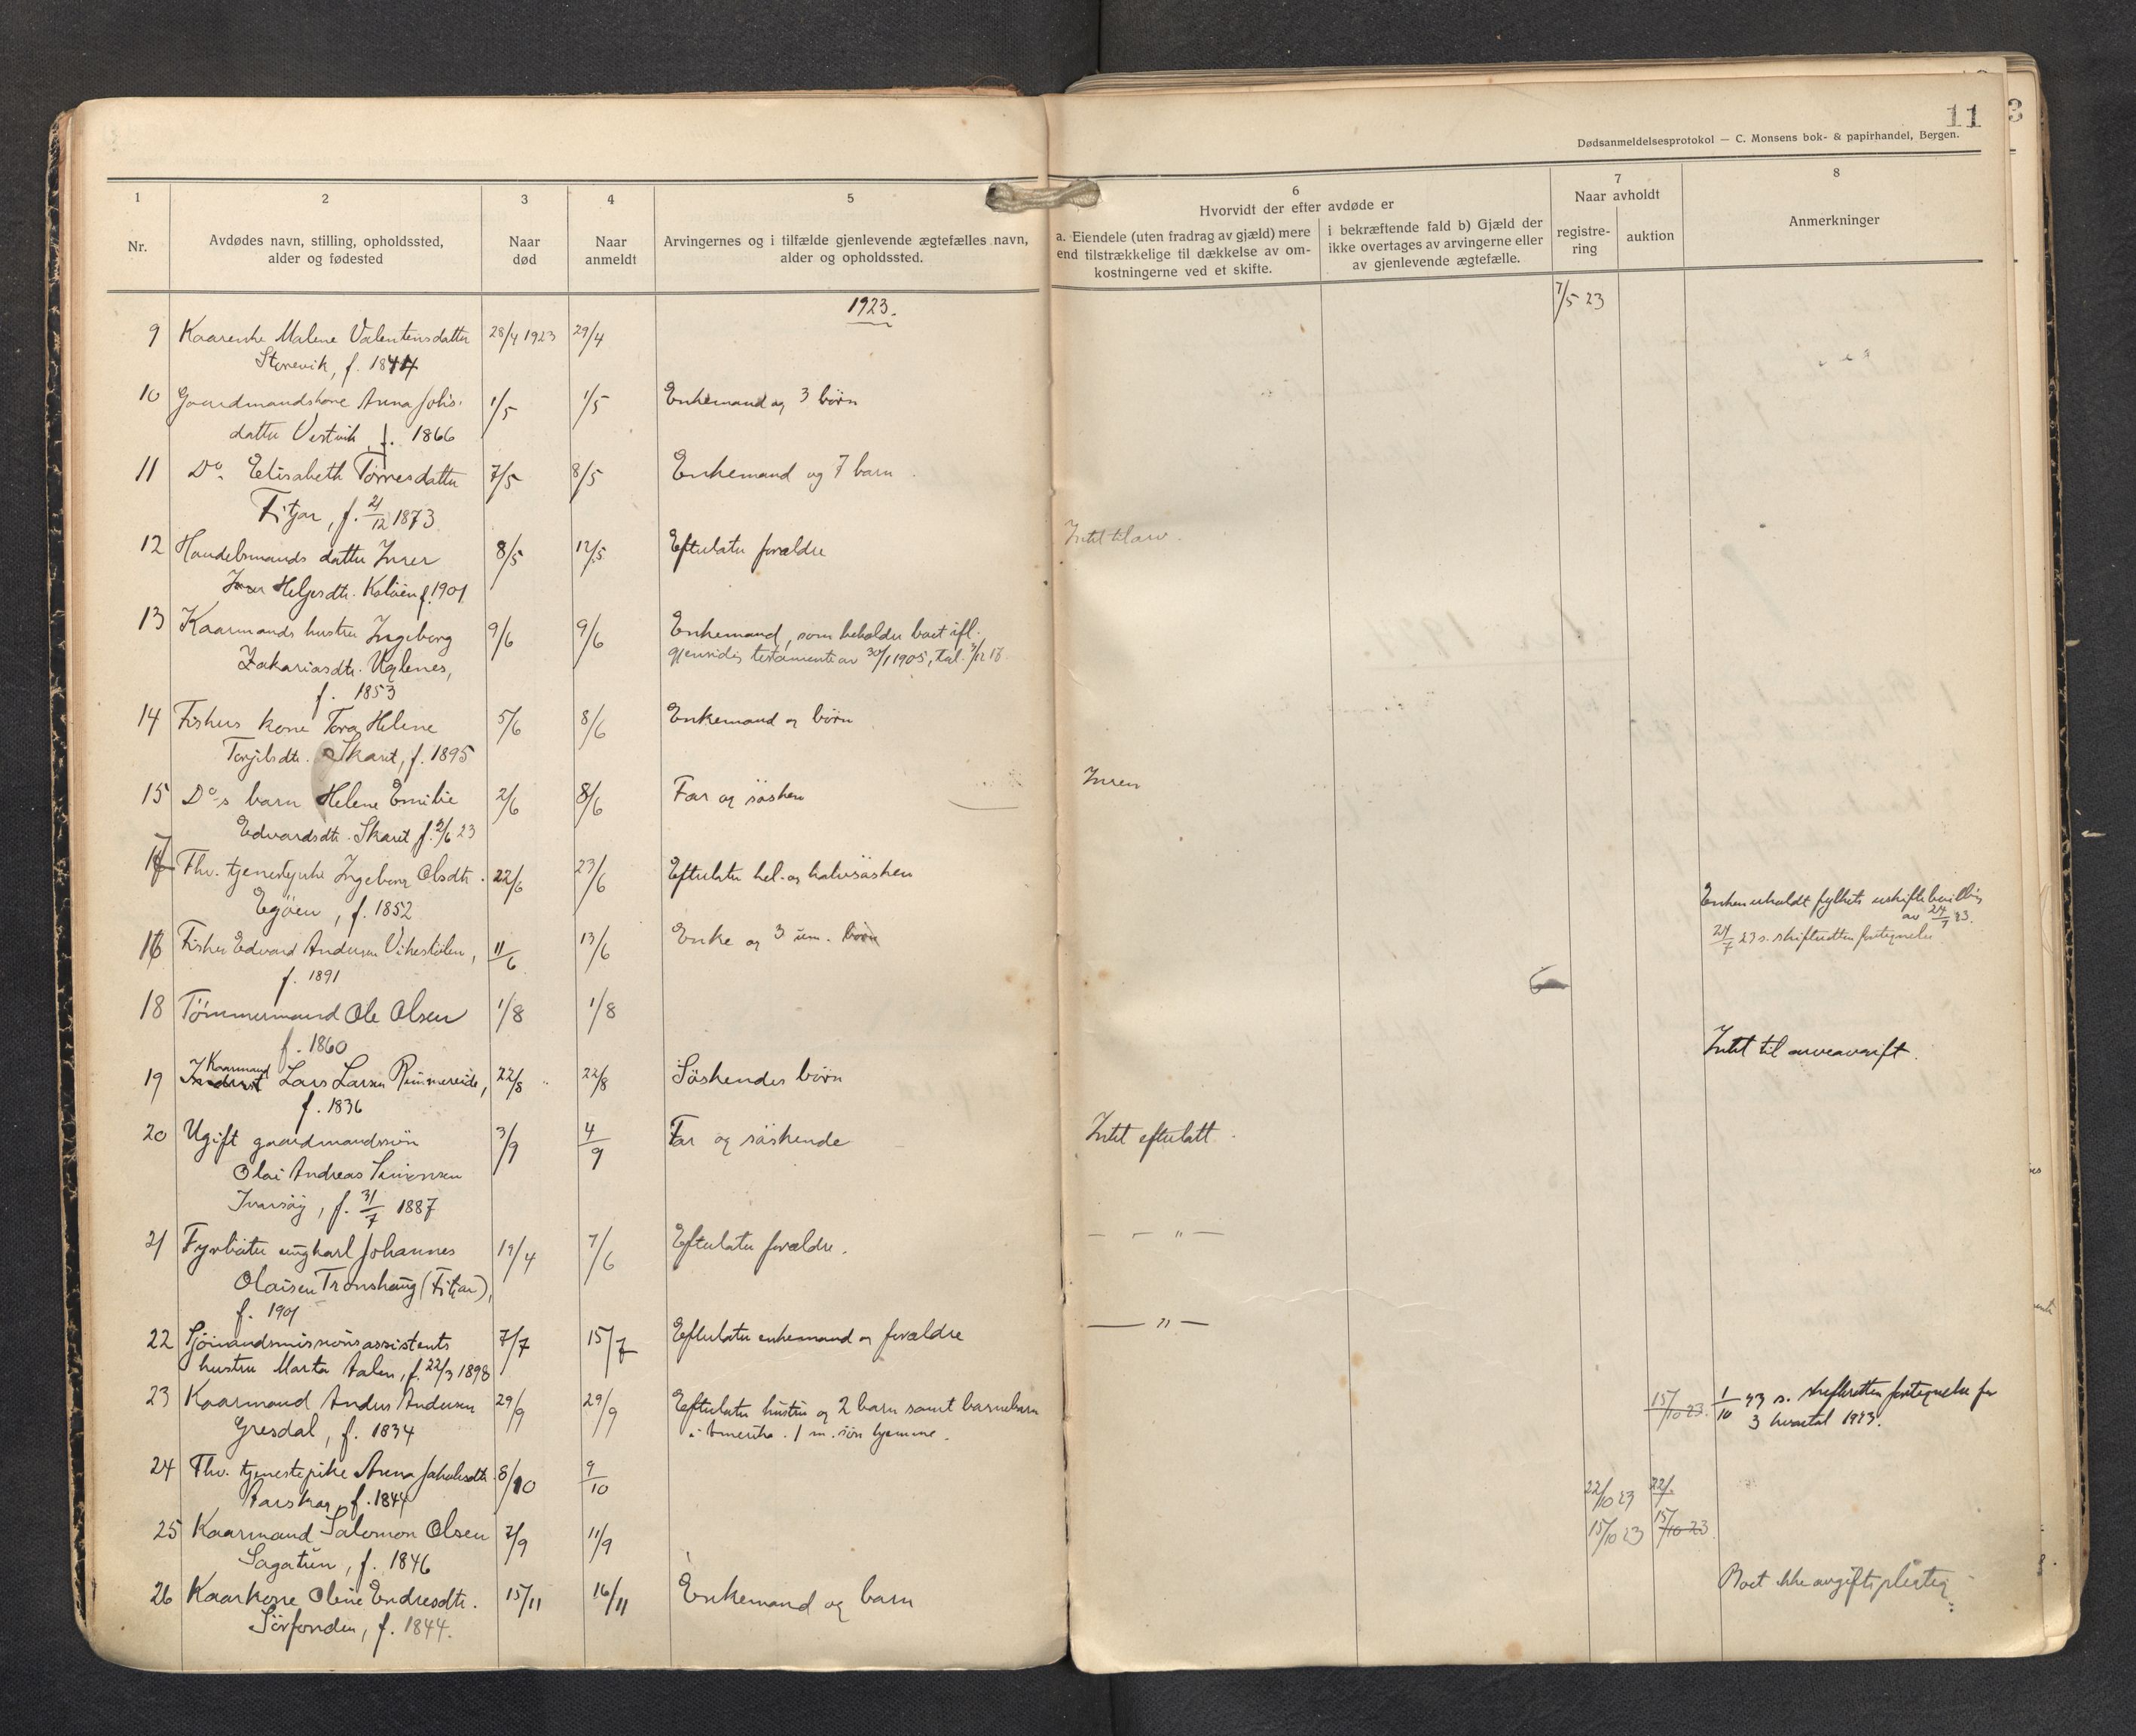 11
Dødsanmeldelsesprotokol — C. Monsens bok- & papirhandel, Bergen.
1
Nr.
2
Avdødes navn, stilling, opholdssted,
alder og fødested
3
Naar
død
4
Naar
anmeldt
5
Arvingernes og i tilfælde gjenlevende ægtefælles navn,
alder og opholdssted.
6
Hvorvidt der efter avdøde er
a. Eiendele (uten fradrag av gjæld) mere
end tilstrækkelige til dækkelse av om-
kostningerne ved et skifte.
i bekræftende fald b) Gjæld der
ikke overtages av arvingerne eller
av gjenlevende ægtefælle.
7
Naar avholdt
registre-
ring
auktion
8
Anmerkninger
1923.
9 Kaarenke Malene Valentinsdatter 28/4 1923 29/4 7/5 23
Storevik, f. 1844
10 Gaardmandskone Anna Johs. 1/5 1/5 Enkemand og 3 börn
datter Vestvik, f. 1866
11 Do. Elisabeth Tørresdatter 7/5 8/5 Enkemand og 7 barn
Fitjar, f. 21/12 1873
12 Handelsmands datter Inger 8/5 12/5 Efterlater forældre Intet til arv.
Helgesdtr. f. 1901
13 Kaarmands hustru Ingeborg 9/6 9/6 Enkemand, som beholder boet ifl.
Zakariasdtr. Uglenes, gjensidig testamente av 30/1 1905,
f. 1853
14 Fiskers kone Tora Helene 5/6 8/6 Enkemand og börn
Torgilsdtr. Skaret, f. 1895
15 Do-s barn Helene Emilie 2/6 8/6 Far og sösken Ingen
Edvardsdtr. Skaret f. 2/6 23
17 Fhv. tjenestepike Ingeborg Olsdtr. 22/6 23/6 Efterlater hel- og halvsösken
Egöen, f. 1852
Enken erholdt fylkets uskiftebevilling
av 24/7 23.
16 Fisker Edvard Andersen Vikestölen, 11/6 13/6 Enke og 3 um. börn
24/7 23 s. skifteretten fortegnelse
f. 1891
18 Tömmermand Ole Olsen 1/8 1/8
f. 1860
Intet til arveavgift.
19 Kaarmand Lars Larsen Rimmereide, 22/8 22/8 Söskendes börn
f. 1836
20 Ugift gaardmandssön 3/9 4/9 Far og söskende Intet efterlatt.
Olai Andreas Simonsen
Ivarsöy, f. 31/7 1887
21 Fyrböter ungkarl Johannes 19/4 7/6 Efterlater forældre. — " —
Olaisen Tronshaug (Fitjar),
f. 1901
22 Sjömandsmissionsassistents 7/7 15/7 Efterlater enkemand og forældre — " —
hustru Marta Aalen, f. 22/3 1898
23 Kaarmand Anders Andersen 29/9 29/9 Efterlater hustru og 2 barn samt barnebarn 15/10 23. 1/10 23 s. skifteretten fortegnelse for
Gresdal, f. 1834 i Amerika. 1 m. sön hjemme. 3 kvartal 1923.
24 Fhv. tjenestepike Anna Jakobsdtr. 8/10 9/10 22/10 23 22/
Aarskog, f. 1844
25 Kaarmand Salomon Olsen 7/9 11/9 15/10 23 15/10 23
Sagatun, f. 1846
26 Kaarkone Oline Endresdtr. 15/11 16/11 Enkemand og barn Boet ikke avgiftspligtig
Sörfonden, f. 1844.